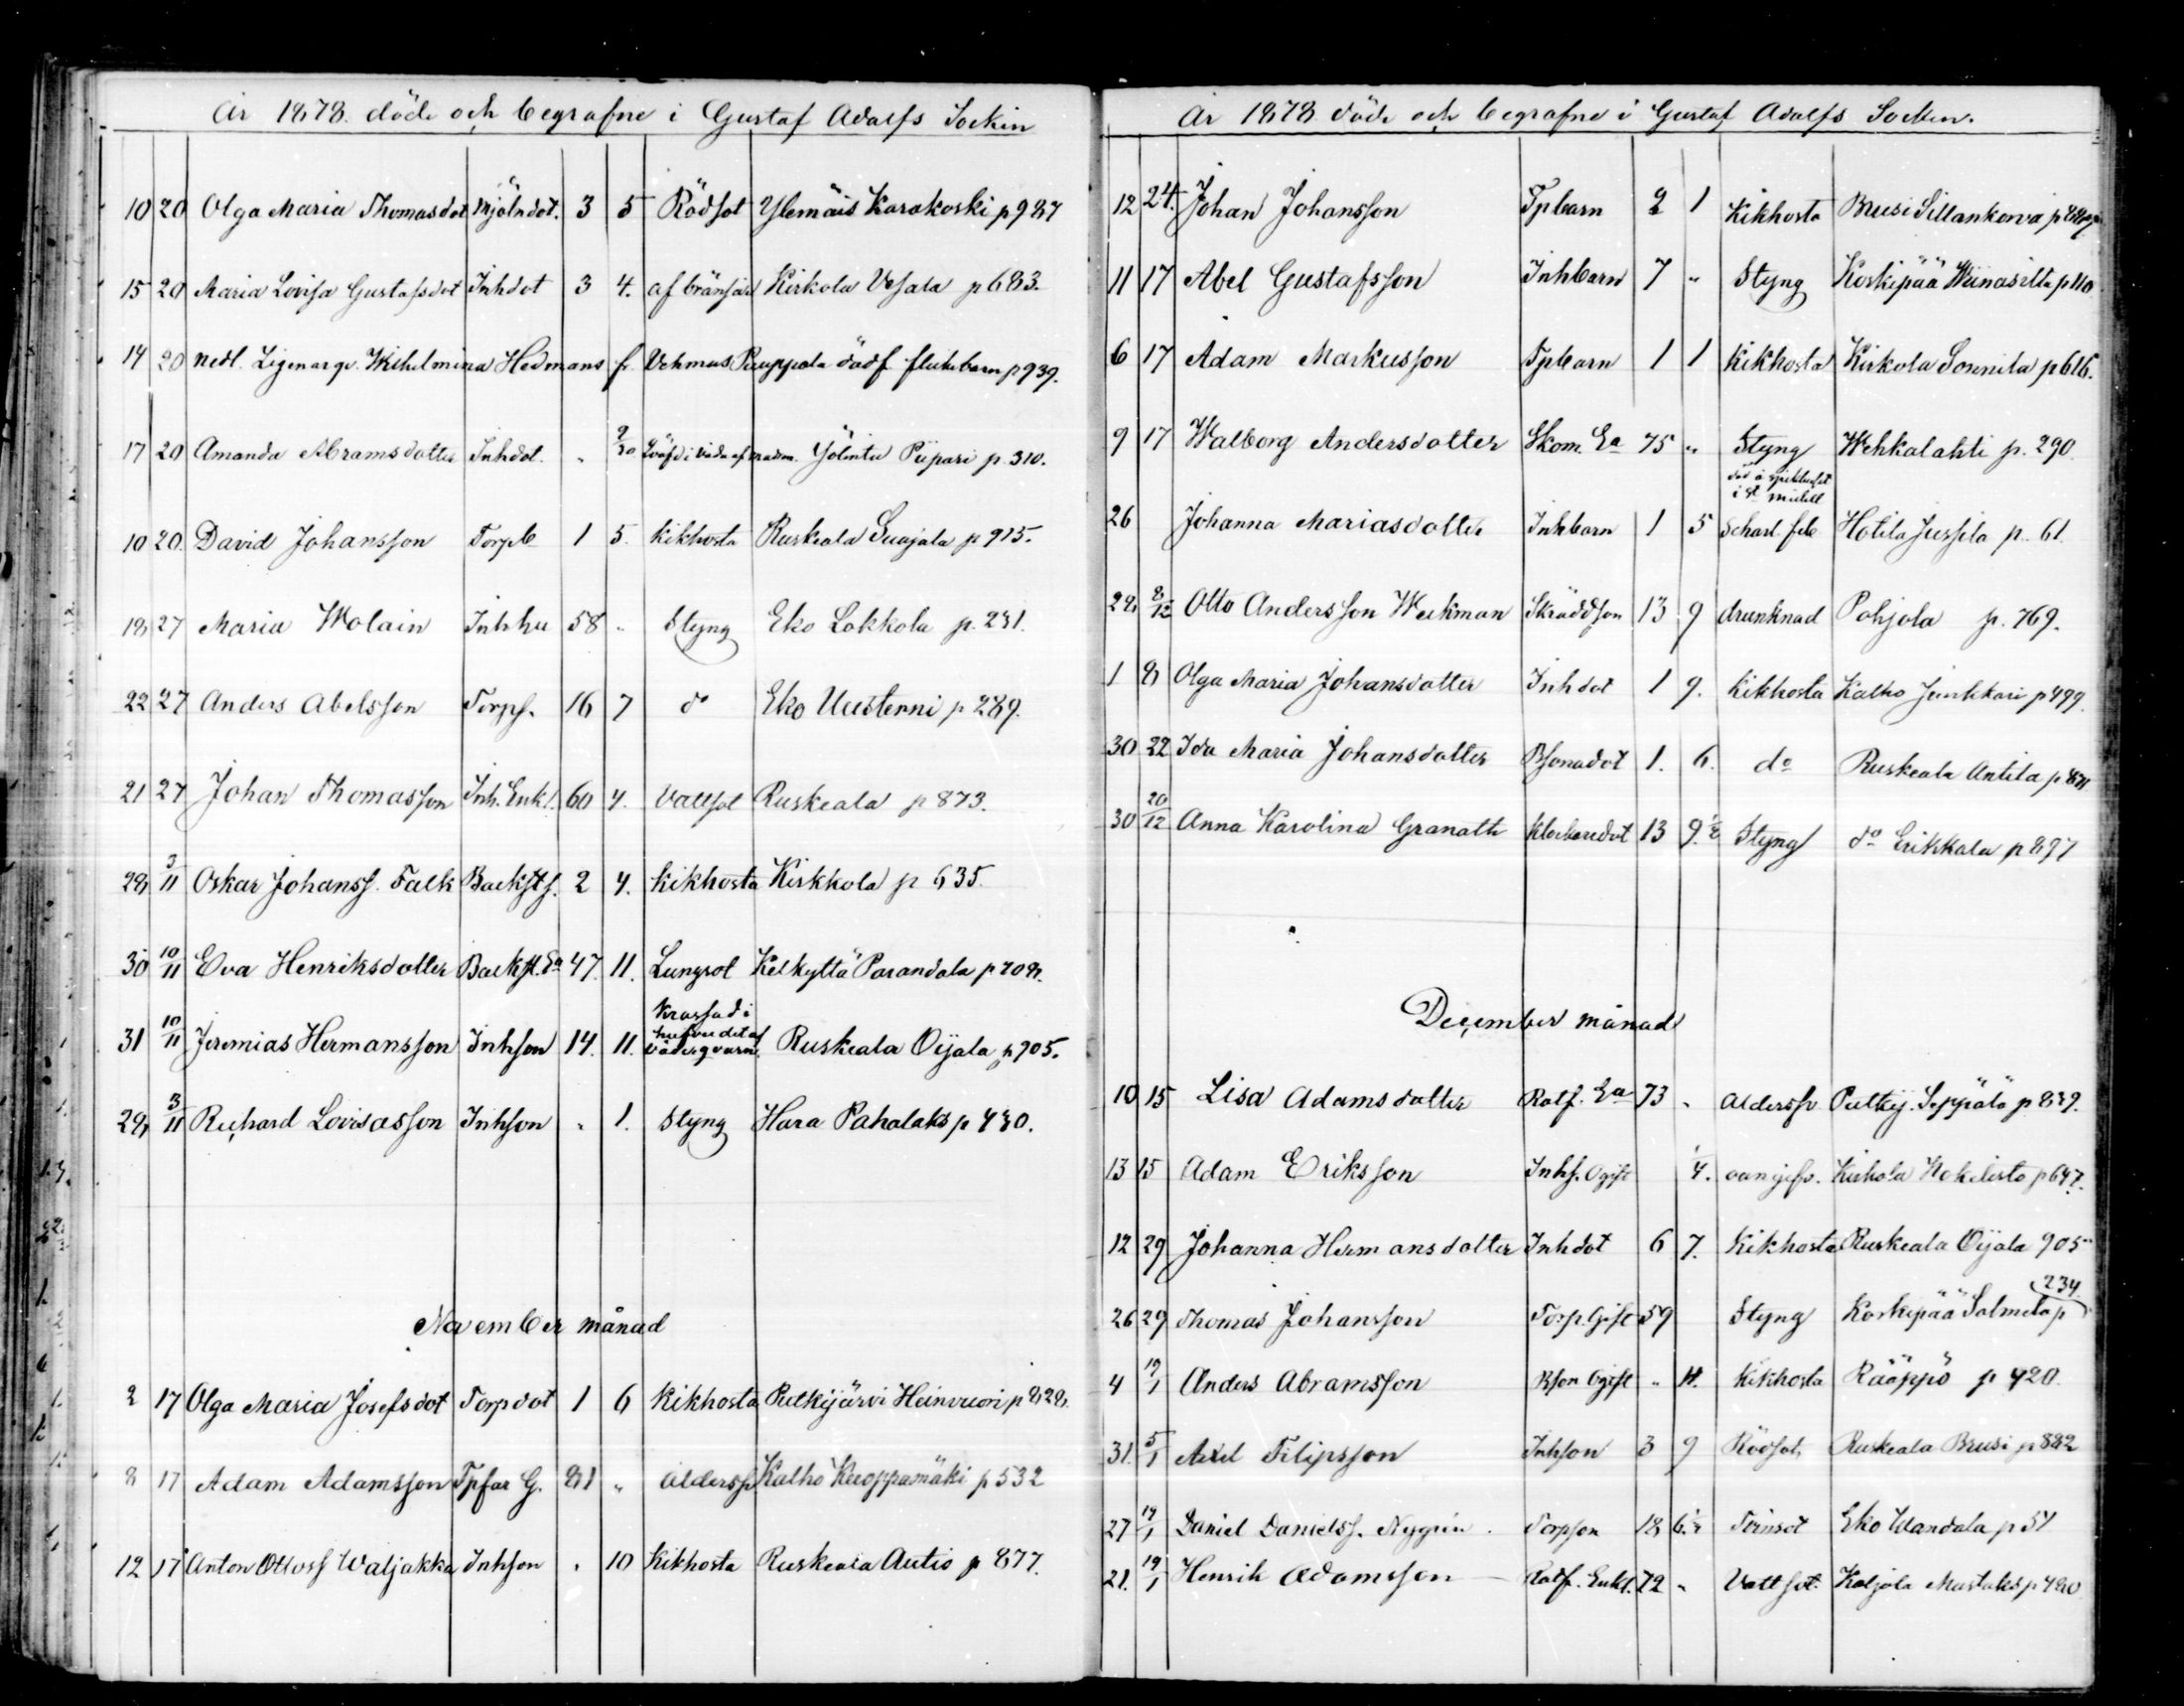 År 1878 döde och begrafne i Gustaf Adolfs Socken
10 20 Olga Maria Thomasdot Mjölndot. 3 5 Rödsot Ylemäis Karakoski p 987
15 20 Maria Lovisa Gustafsdot Inhdot 3 4. af bränsår Kirkola Vesala p 683.
14 20 nedl. Wilhelmina Hedmans fr. Vehmas Pauppala dödf. flickebarn p 939.
17 20 Amanda Abramsdotter Inhdot. " 9/30 Qväfd i våda af modren. Jölmtu Pijpari p. 310.
10 20. David Johansson Torpb 1 5. Kikhosta Ruskeala Suajala p 915.
18 27 Maria Wolain Inhhu 58 " Styng Eko Lokkola p. 231.
22 27 Anders Abelsson Torps. 16 7 do Eko Uusterni p 289.
21 27 Johan Thomasson Inh. Enkl. 60 4. Vattsot Ruskeala p 873.
28 3/11 Oskar Johanss. Falk Backsts. 2 4. Kikhosta Kirkkola p 635.
30 10/11 Eva Henriksdotter Backst. Ea 47. 11. Lungsot Kelkyttä Parandala p 708.
Krossad i
hufvudet af
31 10/11 Jeremias Hermansson Inhson 14. 11. väderqvarn. Ruskeala Oijala p 905.
28 3/11 Richard Lovisasson Inhson " 1. Styng Hara Pahalaks p 430.
November månad
2 17 Olga Maria Josefsdot Torpdot 1 6 Kikhosta Putkijärvi Heinvuori p 828.
8 17 Adam Adamsson Tpfar G. 81 " Åldersp. Kalho Kuoppamäki p 532
12 17 Anton Ottoss Waljakka Inhson " 10 Kikhosta Ruskeala Autio p 877.
År 1878 döde och begrafne i Gustaf Adolfs Socken.
12 24. Johan Johansson Tpbarn 2 1 Kikhosta Brusi Sillankorva
11 17 Abel Gustafsson Inhbarn 7 " Styng Koskipää Wiinasilta p 110
6 17 Adam Markusson Tpbarn 1 1 Kikhosta Kirkola Sonnila p 616.
9 17 Walborg Andersdotter Skom. Ea 75 " Styng Wehkalahti p. 290.
död å sjukhuset
i St. Michell
26 Johanna Mariasdotter Inhbarn 1 5 Scharl. feb Hotila Jussila p. 61.
28 8/12 Otto Andersson Weckman Skräddson 13 9 drunknad Pohjola p. 769.
1 8 Olga Maria Johansdotter Inhdot 1 9. Kikhosta Kalho Junkkari p 499.
30 22 Ida Maria Johansdotter Bsonadot 1. 6. do Ruskeala Antila p 871
30 20/12 Anna Karolina Granath Klockaredot 13 9 1/2 Styng do Erikkala p 897
December månad
10 15 Lisa Adamsdotter Rotf. Ea 73 " Åldersp. Putkij. Seppälä p 839.
13 15 Adam Eriksson Inhs. Ogift 1/4. oangifv. Kirkola p 647.
12 29 Johanna Hermansdotter Inhdot 6 7. Kikhosta Ruskeala Oijala 905
26 29 Thomas Johansson Torp. Gift 59 Styng Koskipää Salmela p 234.
4 19/1 Anders Abramsson Bson Ogift " 11. Kikhosta Rääppö p 420.
31. 5/1 Axel Filipsson Inhson 3 9 Rödsot, Ruskeala Brusi p 882
27 19/1 Daniel Danielss. Nygrén. Torpson 18 6. Tvinsot Eko Wandala p 51
21. 19/1 Henrik Adamsson Rotf. Enkl. 72 " Vattsot. Koljola Mastaks p 480